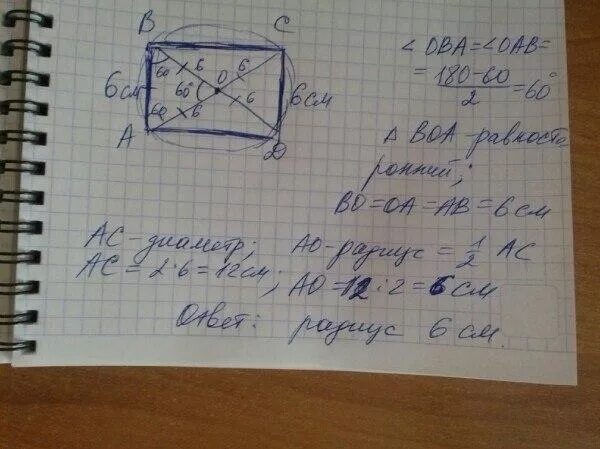 B C
60 6 O 6
6см 60° 6см
60 6 6
A D
∠OBA=∠OAB=
= 180-60 / 2 = 60°
Δ BOA - равносто
ронний;
BO=OA=AB=6см
AC-диаметр; AO-радиус = 1/2 AC
AC = 2·6=12см; AO=12:2=6см
Ответ: радиус 6 см.